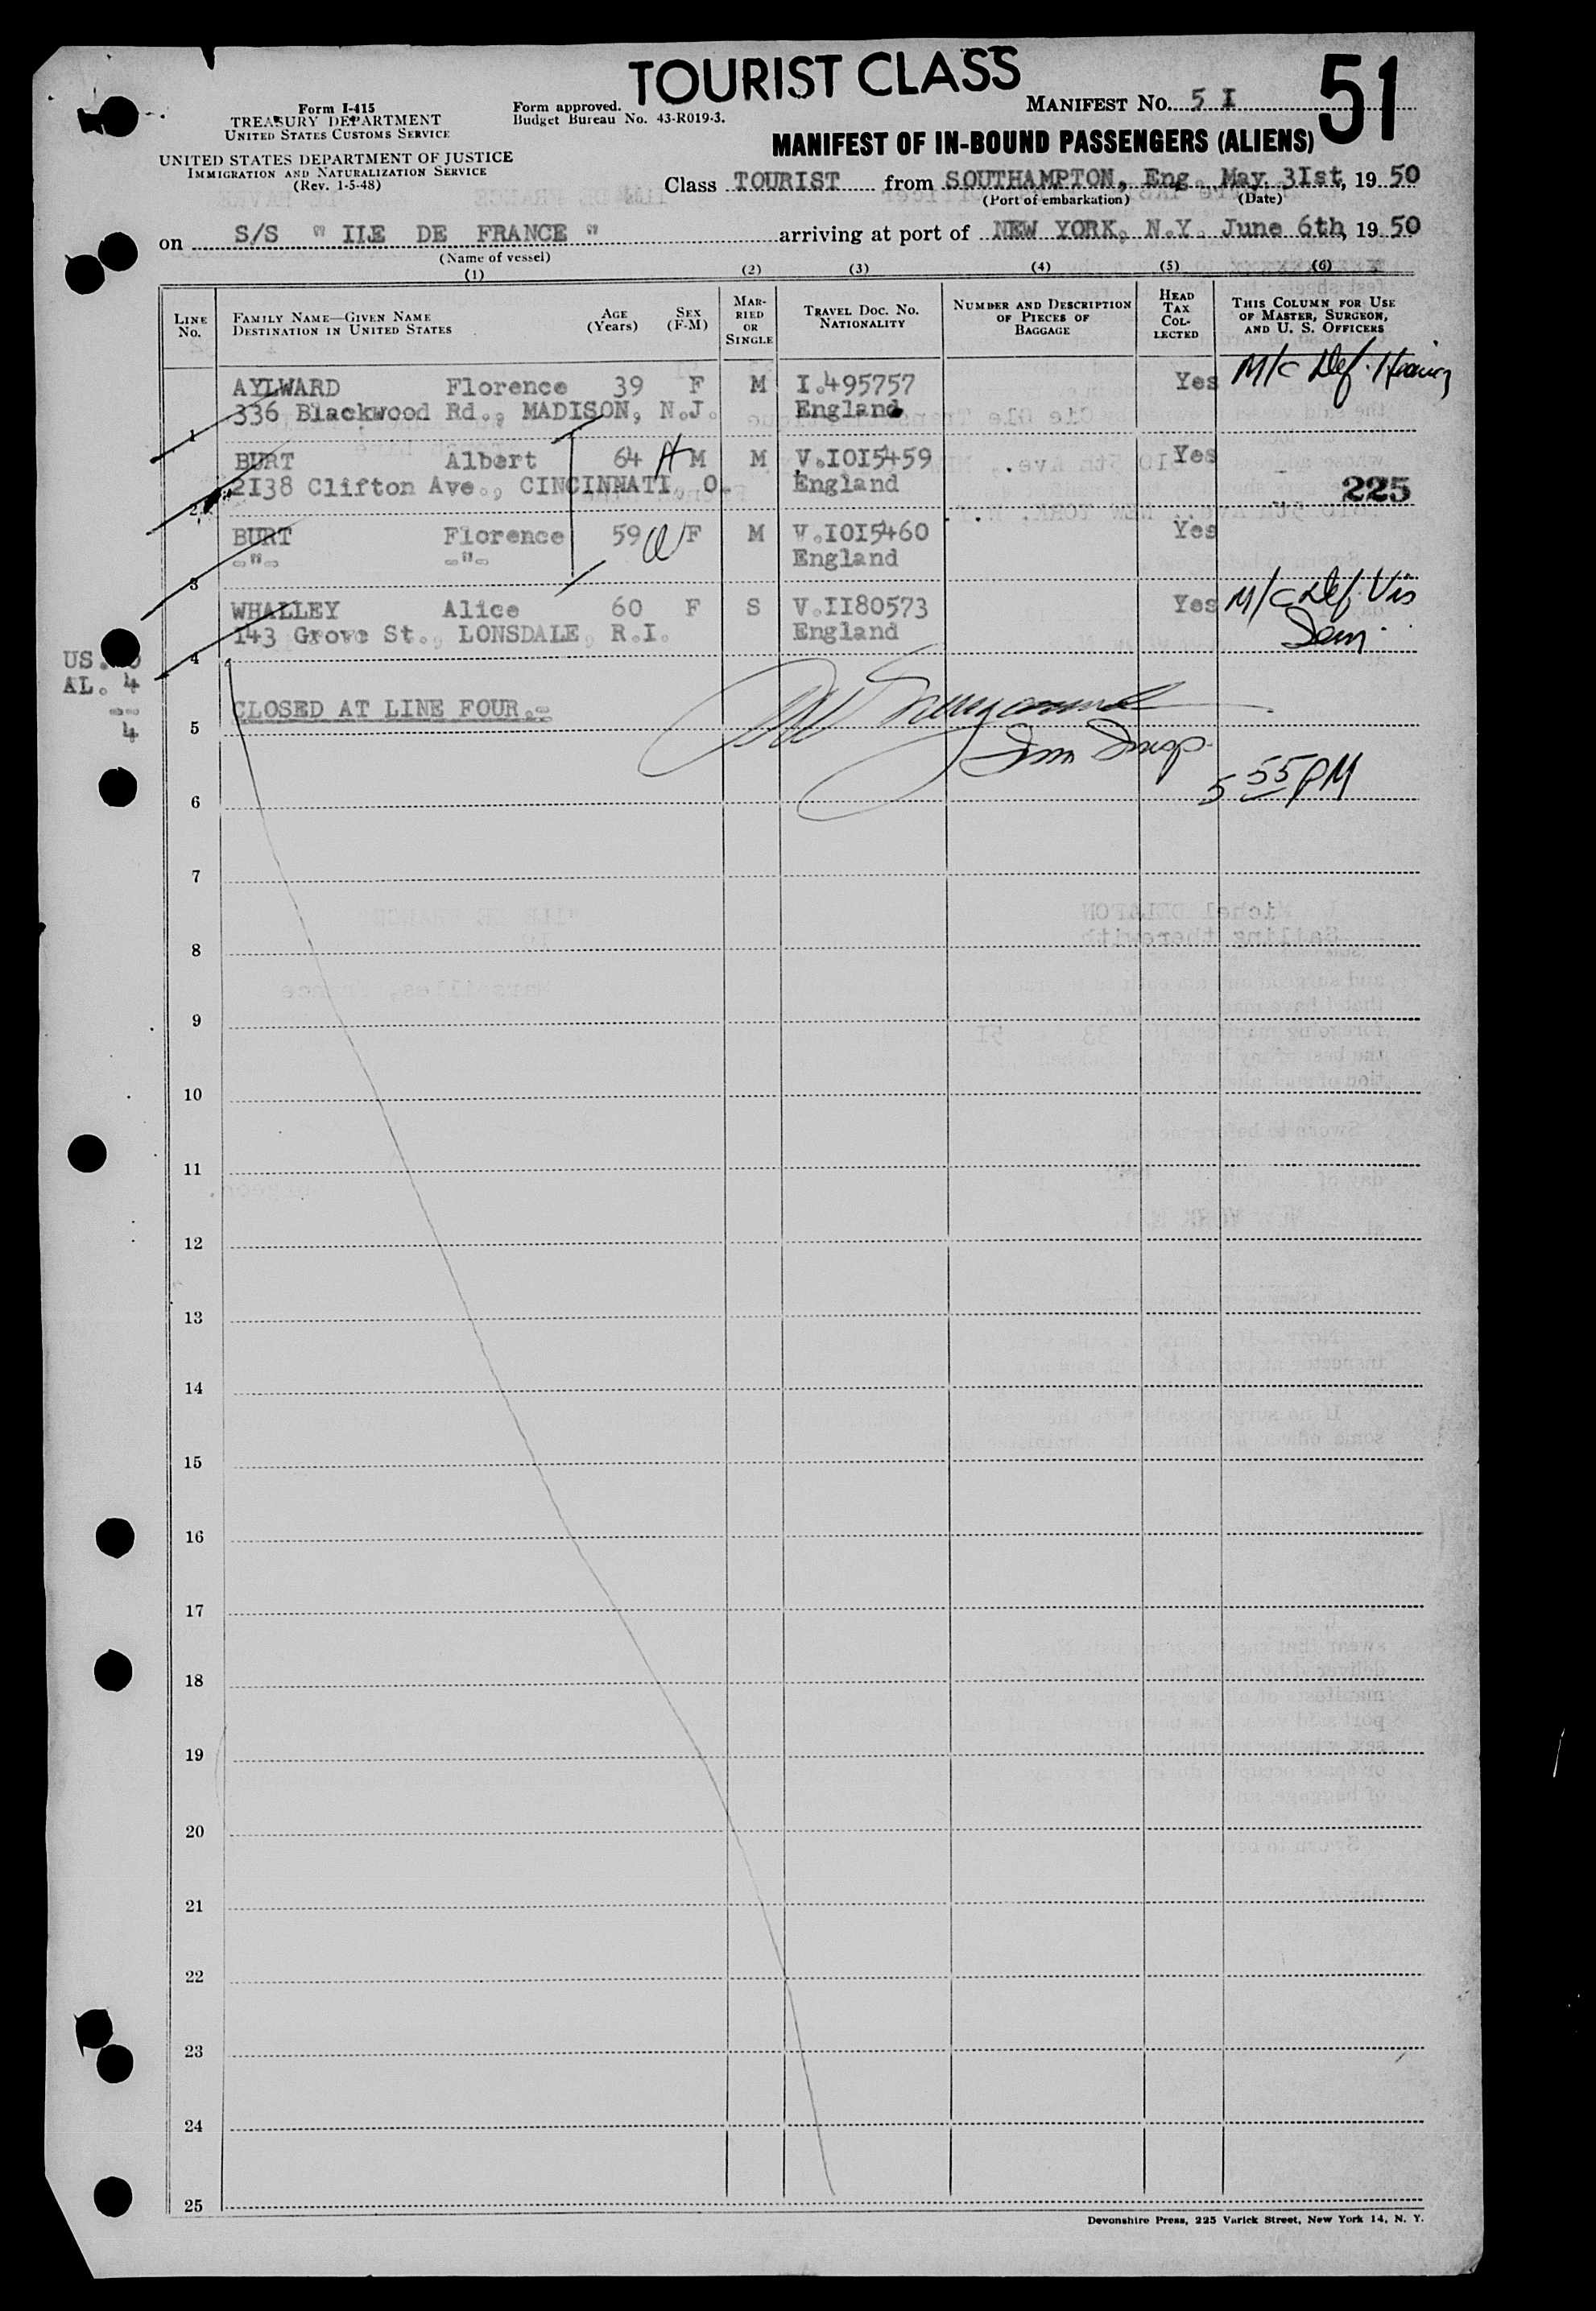 TOURIST CLASS
51
Form I-415
TREASURY DEPARTMENT
UNITED STATES CUSTOMS SERVICE
Form approved.
Budget Bureau No. 43-R019-3.
MANIFEST NO. 5 I
UNITED STATES DEPARTMENT OF JUSTICE
IMMIGRATION AND NATURALIZATION SERVICE
(Rev. 1-5-48)
MANIFEST OF IN-BOUND PASSENGERS (ALIENS)
Class TOURIST from SOUTHAMPTON, Eng May 3Ist, 19 50
(Port of embarkation) (Date)
on S/S " ILE DE FRANCE " arriving at port of NEW YORK, N.Y. June 6th, 19 50
(Name of vessel)
(1) (2) (3) (4) (5) (6)
LINE No.
FAMILY NAME—GIVEN NAME
DESTINATION IN UNITED STATES
AGE (Years)
SEX (F-M)
MARRIED OR SINGLE
TRAVEL DOC. NO.
NATIONALITY
NUMBER AND DESCRIPTION OF PIECES OF BAGGAGE
HEAD TAX COLLECTED
THIS COLUMN FOR USE OF MASTER, SURGEON, AND U. S. OFFICERS
AYLWARD Florence 39 F M I.495757 Yes M/C Def.
336 Blackwood Rd., MADISON, N.J. England
1
BURT Albert 64 M M V.IOI5459 Yes
2I38 Clifton Ave., CINCINNATI O. England 225
2
BURT Florence 59 F M V.IOI5460 Yes
-"- -"- England
3
WHALLEY Alice 60 F S V.II80573 Yes M/C Def. Vis
I43 Grove St., LONSDALE, R.I. England
4
US. 0
AL. 4
--
4
CLOSED AT LINE FOUR.-
5
Imm Insp.
5 55 PM
6
7
8
9
10
11
12
13
14
15
16
17
18
19
20
21
22
23
24
25
Devonshire Press, 225 Varick Street, New York 14, N. Y.